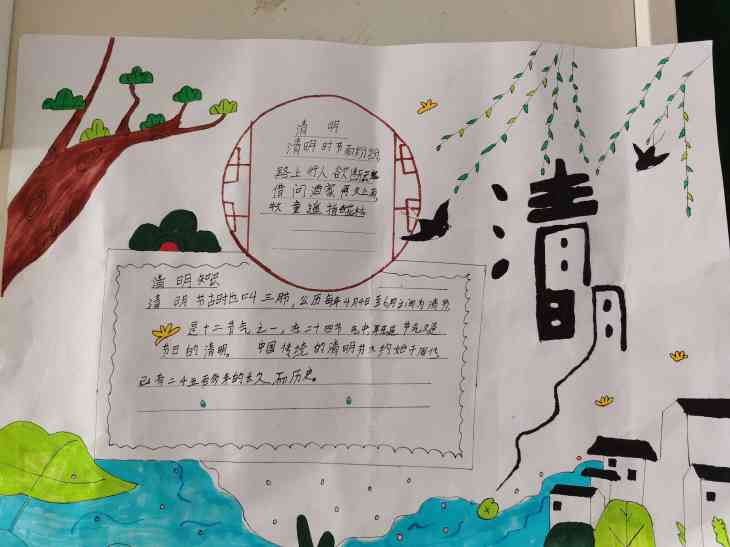 清明
清明时节雨纷纷
路上行人欲断
借问酒家有
牧童遥指
清明
清明知识
清明节古时也叫三月节,公历每年4月4日至6日之间为清明
是二十节气之一,在二十四节气中既是节气又是
节日的清明。中国传统的清明节大约始于周代,
已有二千五百多年的长久而历史。